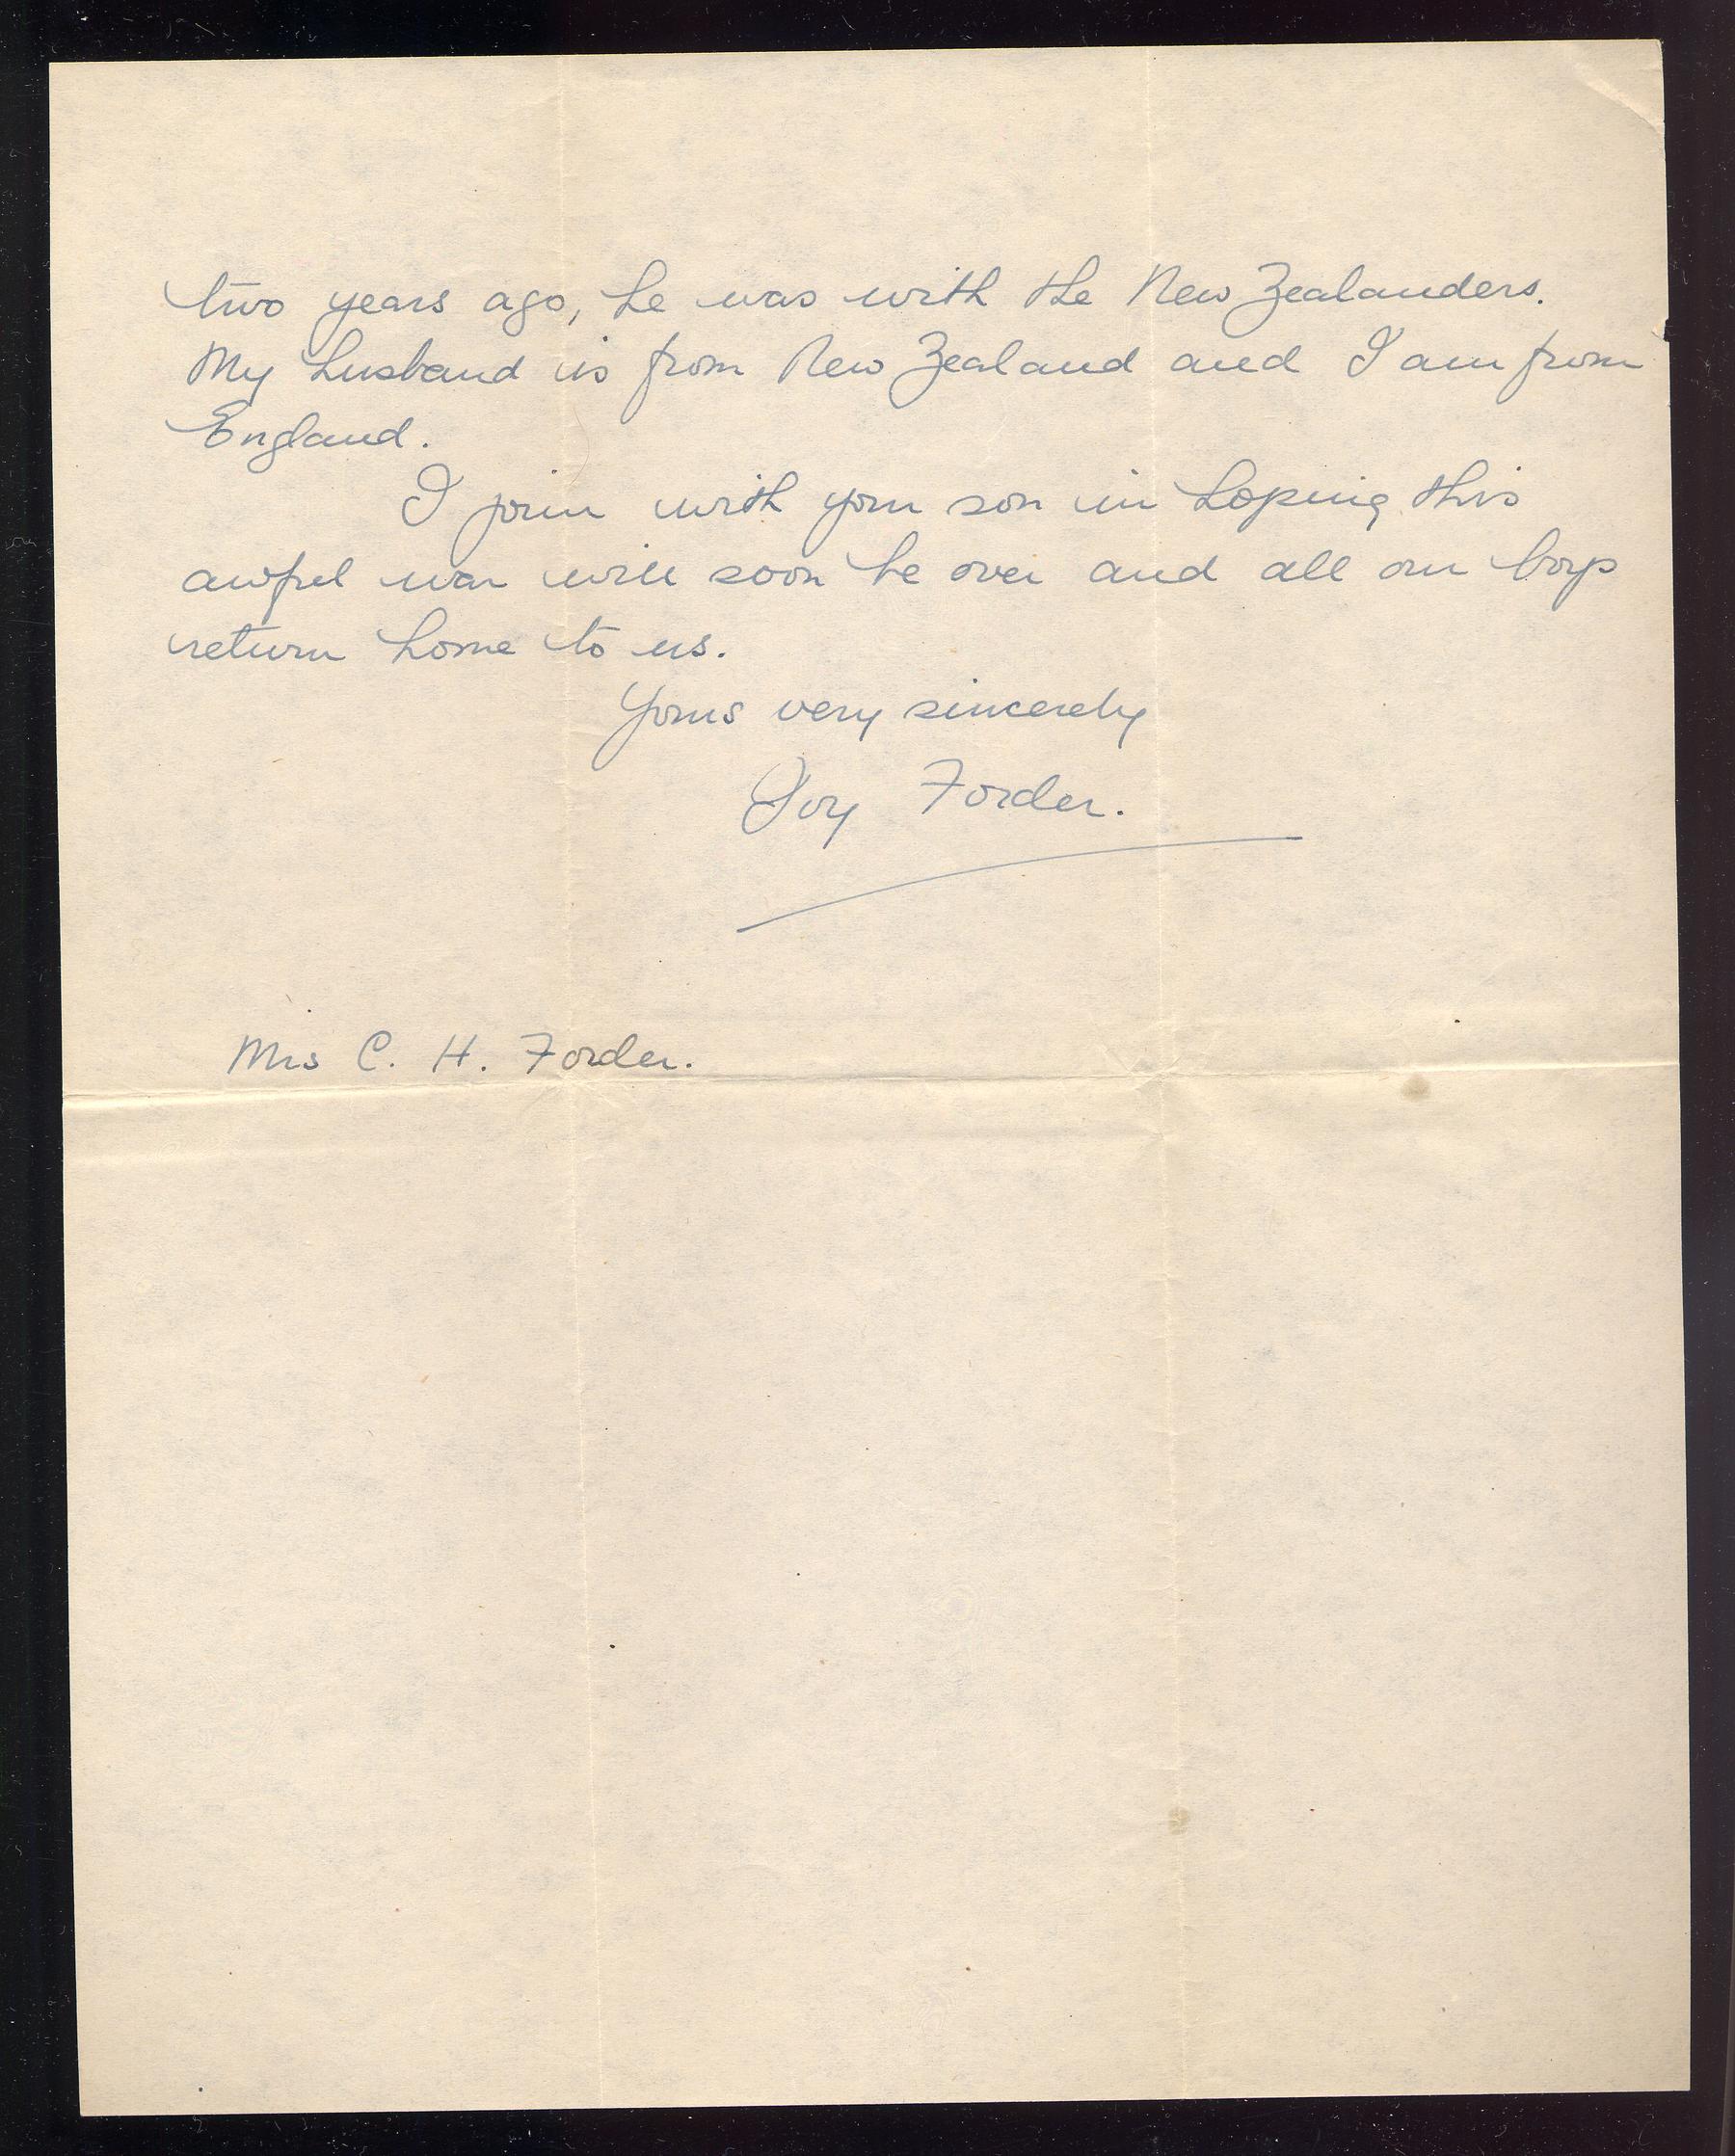 two years ago, he was with the New Zealanders.
My husband is from New Zealand and I am from
England.
I join with your son in hoping this
awful war will soon be over and all our boys
return home to us.
Yours very sincerely
Joy Forder.
Mrs C. H. Forder.